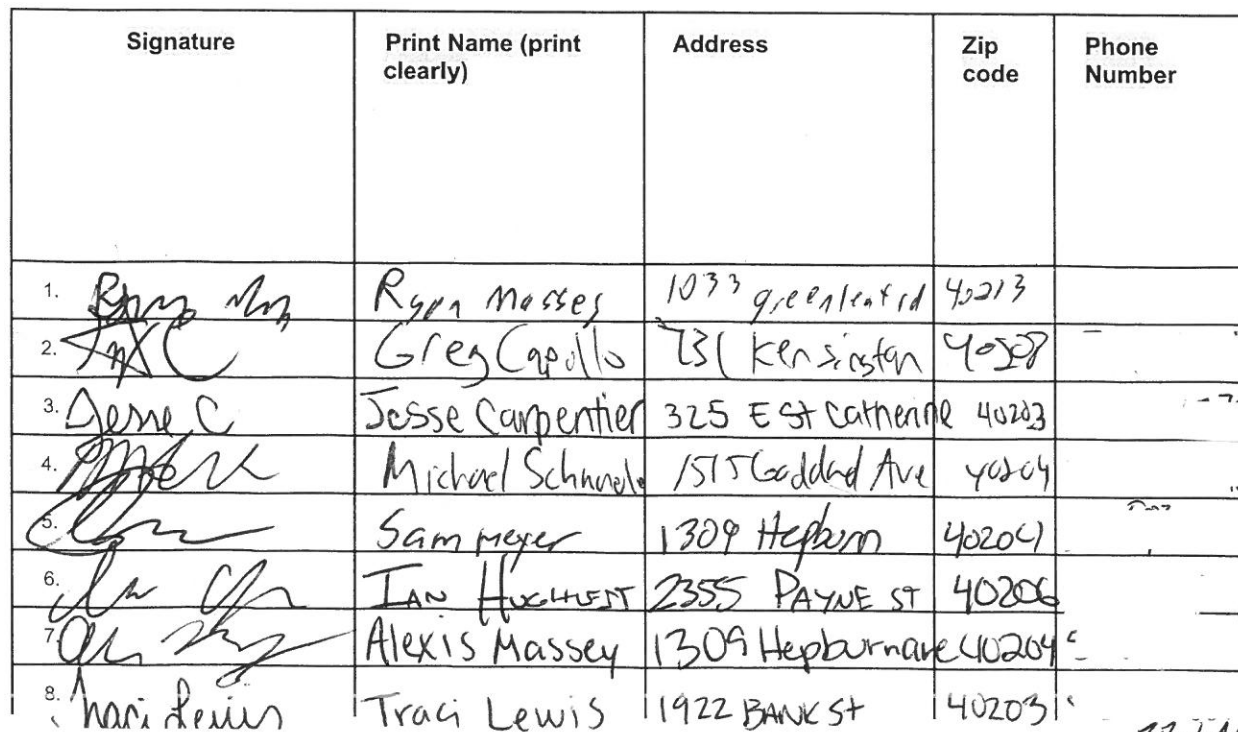 Signature Print Name (print clearly) Address Zip code Phone Number
1. Ryan Masses 1033 greenleaf rd 40213
2. Greg Capullo 731 Kensington
3. Jesse C Jesse Carpentier 325 E St Catherine 40203
4. Michael 1515 Goddard Ave 40204
5. Sam Meyer 1309 Hepburn 40204
6. IAN 2355 PAYNE ST 40206
7. Alexis Massey 1309 Hepburn ave 40204
8. Traci Lewis Traci Lewis 1922 BANK St 40203